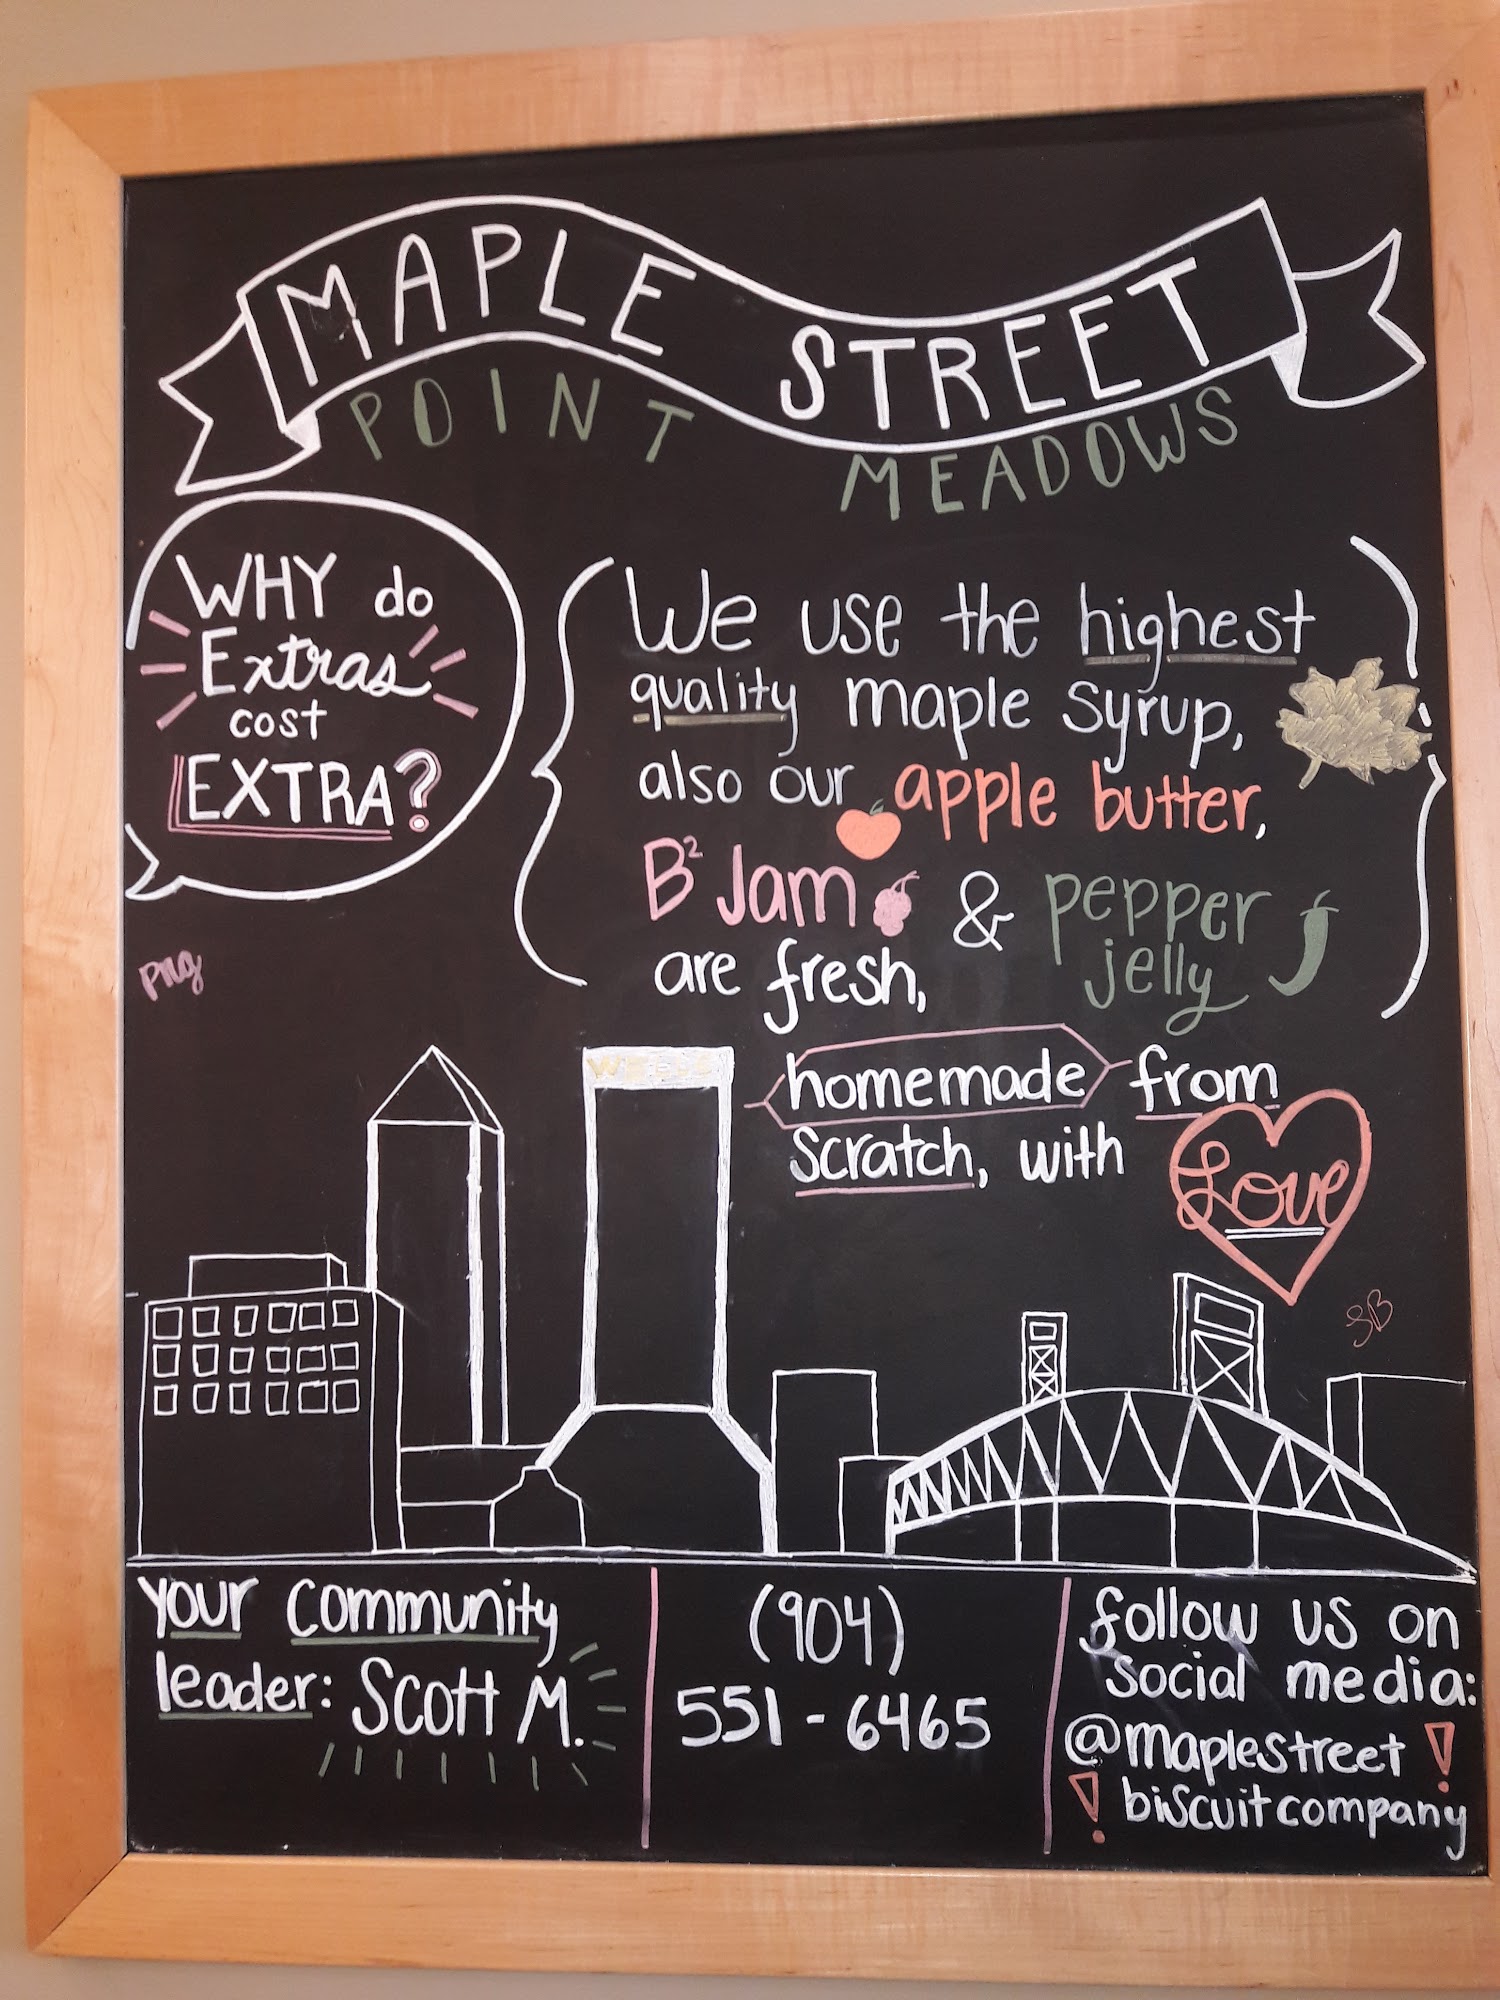 MAPLE STREET
POINT MEADOWS
WHY do
Extras
cost
EXTRA?
We use the highest
quality maple syrup,
also our apple butter,
B² Jam & pepper
jelly
are fresh,
homemade from
scratch, with
Love
png
SB
your community
leader: Scott M.
(904)
551-6465
follow us on
social media:
@maplestreet
biscuitcompany